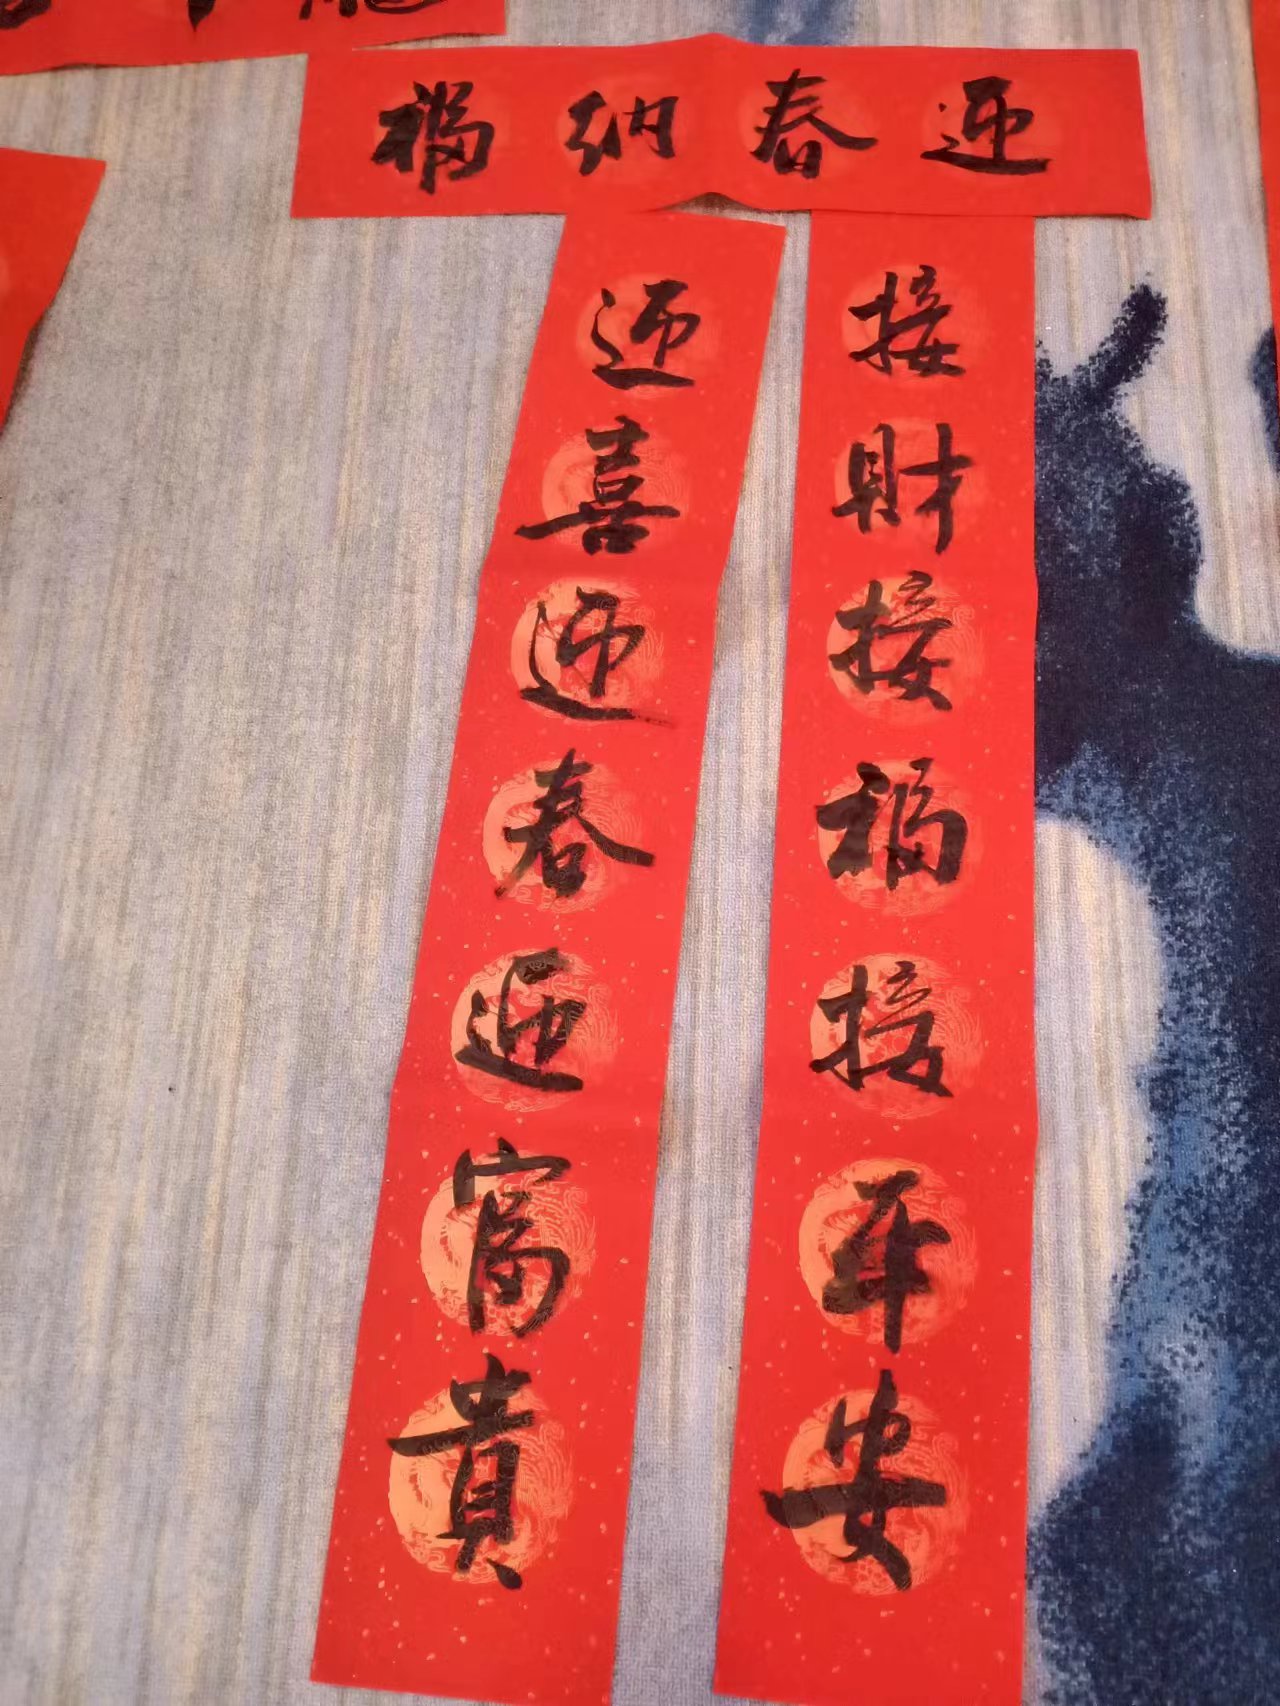 迎春纳福
接財接福接平安
迎喜迎春迎富貴